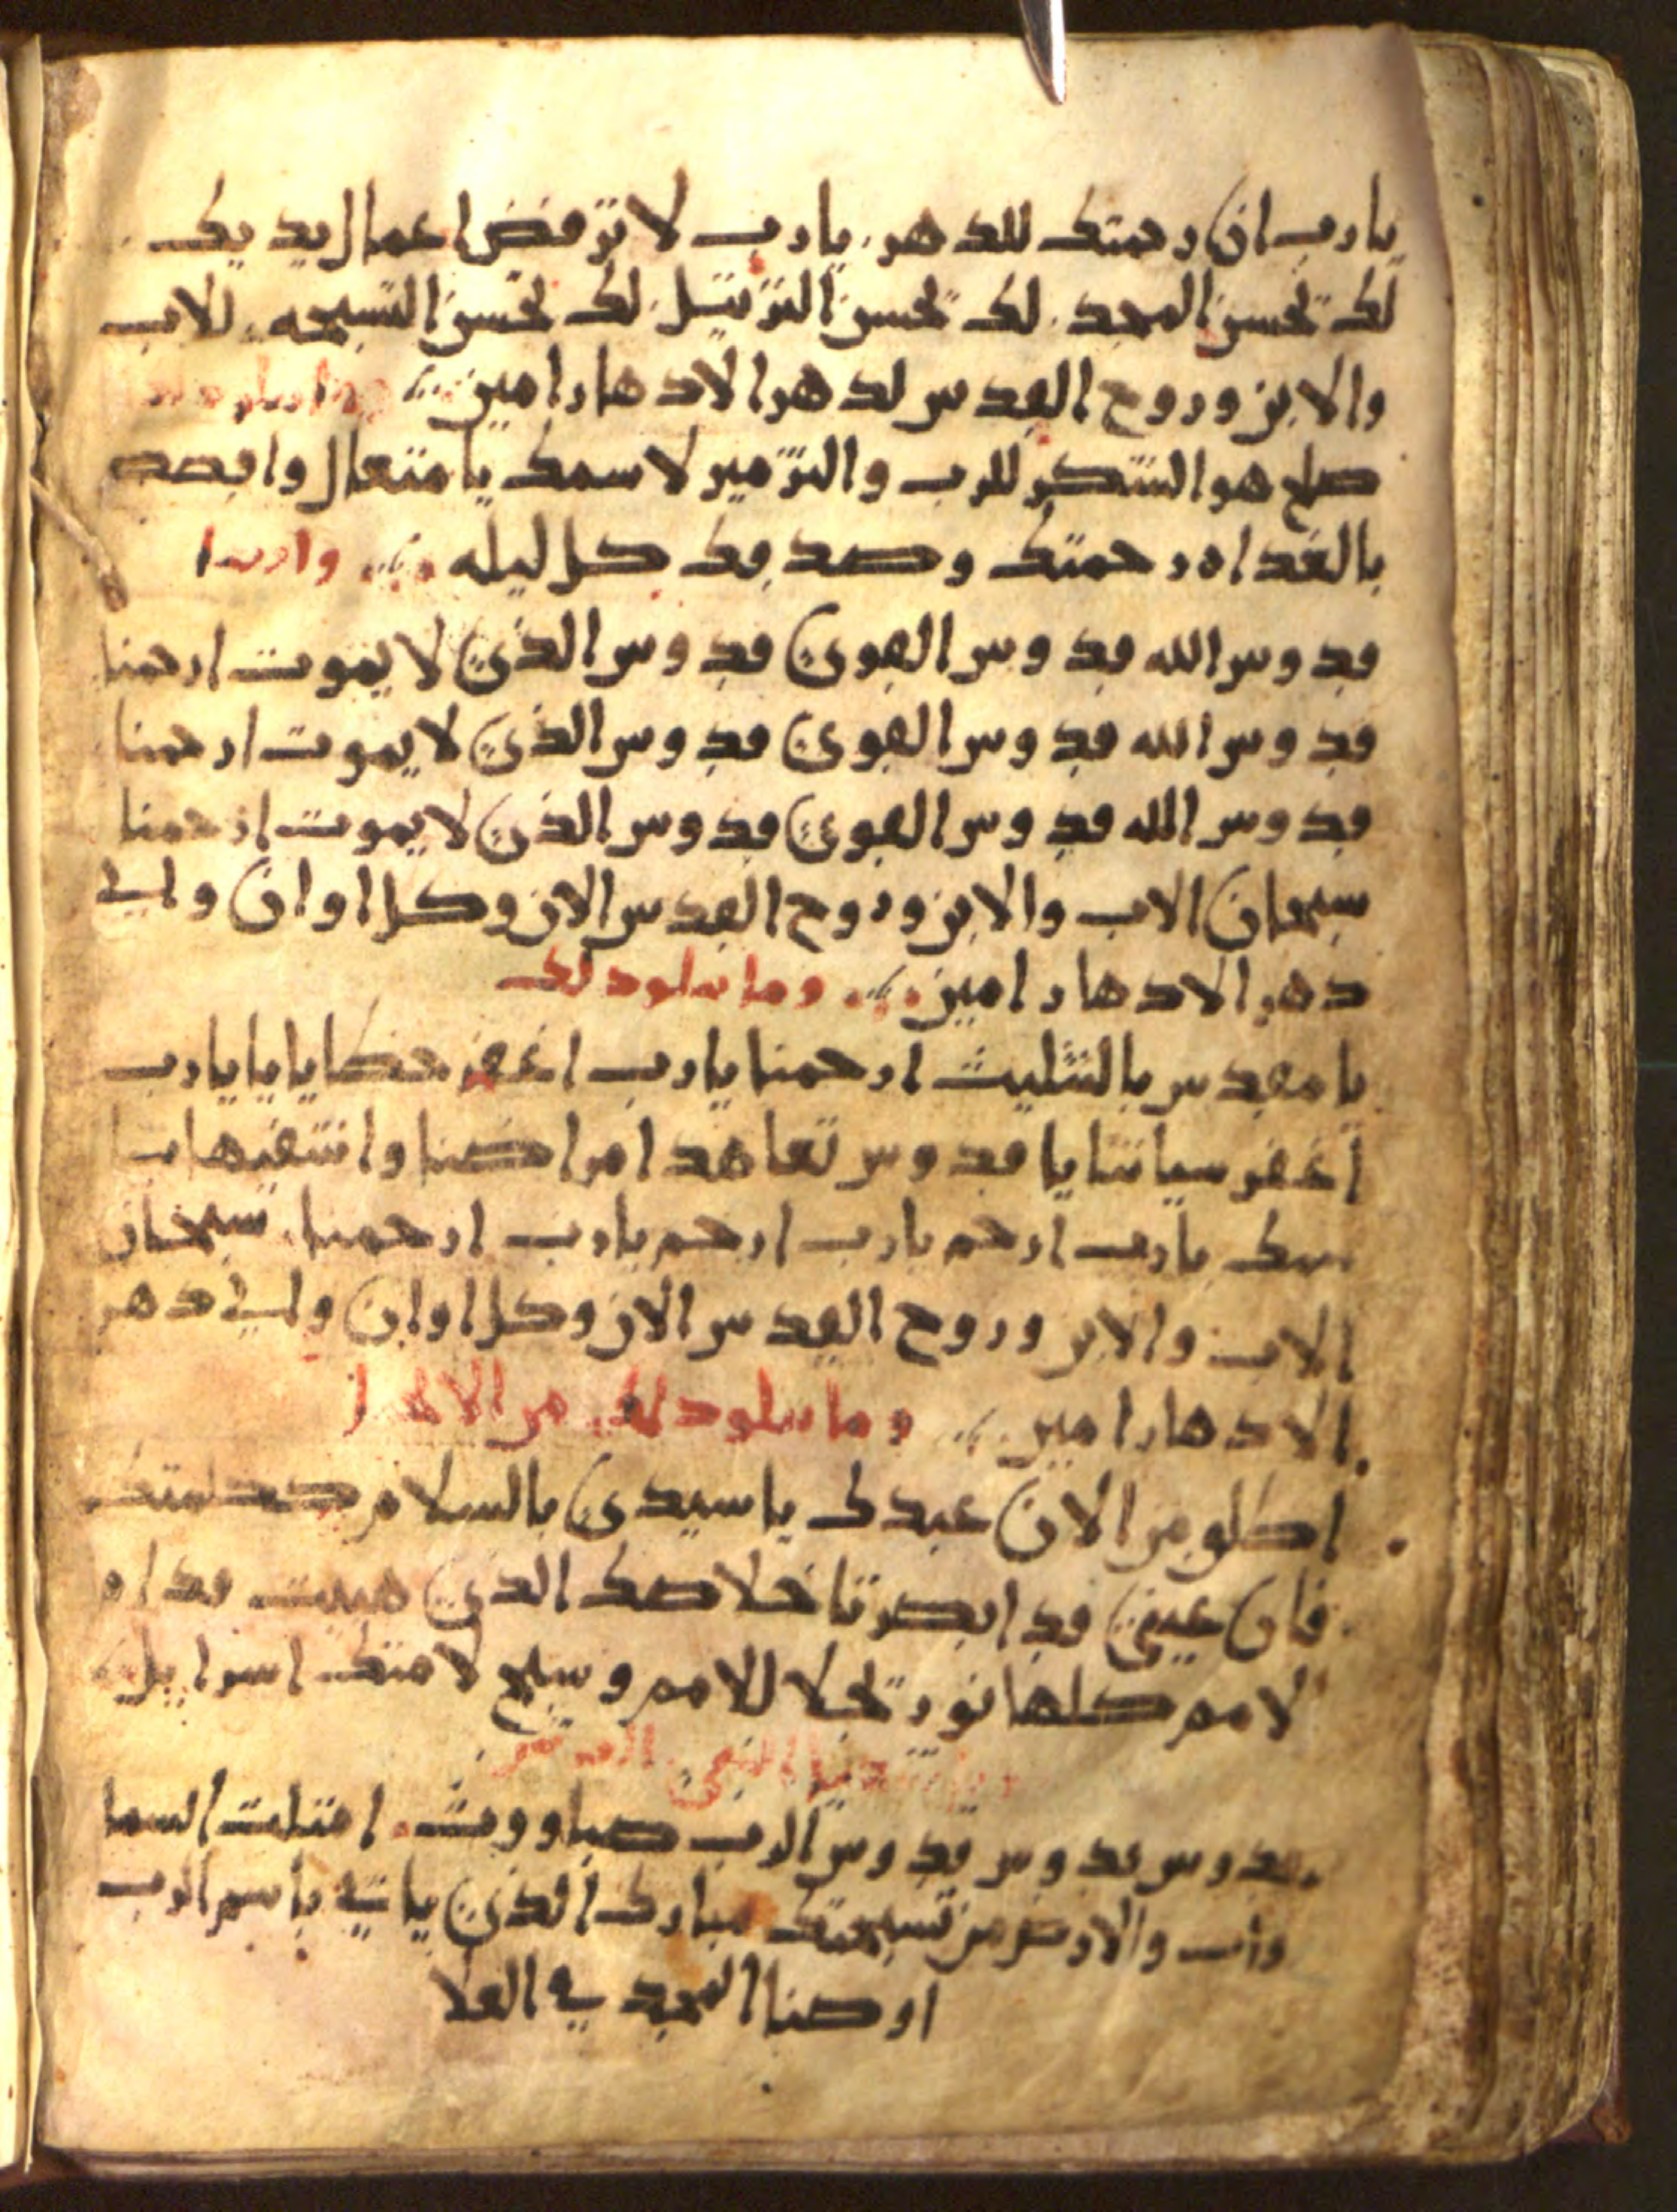 يا رب ان رحمتك للدهر. يا رب لا ترفض اعمال يديك
لك تحسن المجد. لك تحسن الترتيل. لك تحسن التسبحه. للاب
والابن وروح القدس لدهر الادهار امين
صلح هو الشكر للرب والتزمير لاسمك يا متعال وافصد
بالغداه رحمتك وصدقك كل ليله وايضا
قدوس الله قدوس القوي قدوس الذي لا يموت ارحمنا
قدوس الله قدوس القوي قدوس الذي لا يموت ارحمنا
قدوس الله قدوس القوي قدوس الذي لا يموت ارحمنا
سبحان الاب والابن وروح القدس الان وكل اوان والي
دهر الادهار امين وما يتلو ذلك
يا مقدس بالتثليث ارحمنا يا رب اغفر خطايانا يا رب
اغفر سياتنا يا قدوس تعاهد امراضنا واشفيها من
يا رب ارحم يا رب ارحم يا رب ارحمنا. سبحان
الاب والابن وروح القدس الان وكل اوان والي دهر
الادهار امين وما يتلو ذلك من
اطلق من الان عبدك يا سيدي بالسلام ككلمتك
فان عيني قد ابصرتا خلاصك الذي هييت قدام
لامم كلها نور تجلا للامم وسبح لامتك اسراييل
النبي
قدوس قدوس قدوس الرب صباووث. امتلت السما
وات والارض من تسبحتك مبارك الذي ياتي باسم الرب
اوصنا المجد في العلا